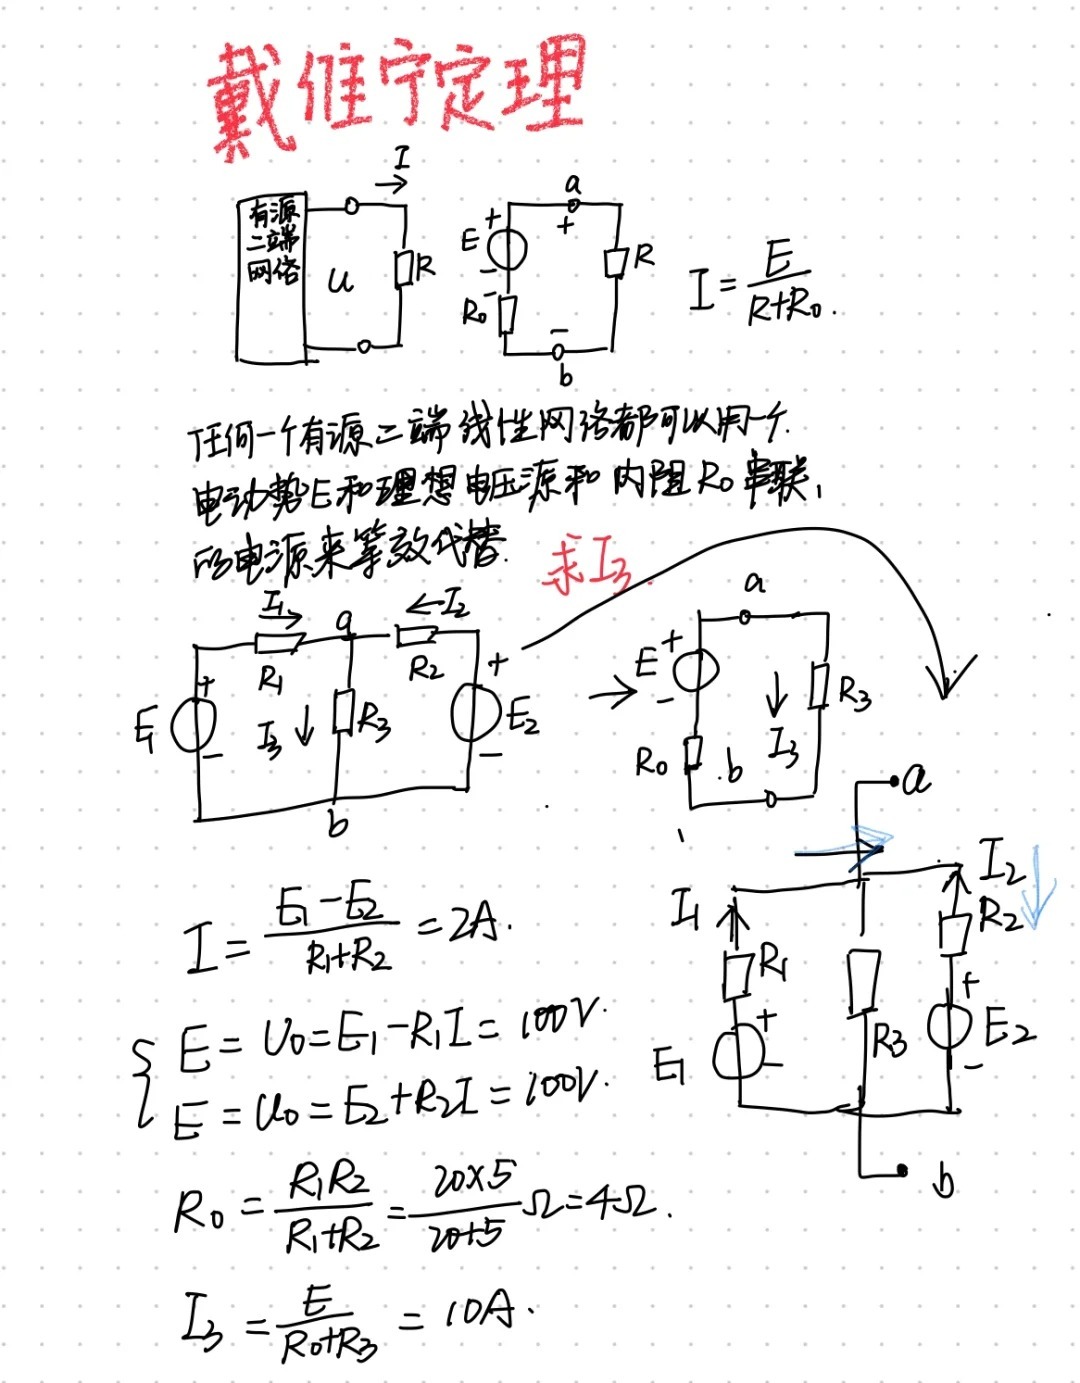 戴维宁定理
有源
二端
网络
I
U
R
a
+
+
E
-
-
R₀
R
-
b
I = E/(R+R₀).
任何一个有源二端线性网络都可以用一个.
电动势E和理想电压源和内阻R₀串联,
的电源来等效代替.
求I₃.
I₁
a
I₂
R₁
R₂
+
+
E₁
I₃
R₃
E₂
-
-
b
a
+
E
-
R₃
R₀
b
I₃
a
I₁
I₂
R₁
R₂
+
+
E₁
R₃
E₂
-
-
b
I = (E₁-E₂)/(R₁+R₂) = 2A.
E = U₀ = E₁-R₁I = 100V.
E = U₀ = E₂+R₂I = 100V.
R₀ = R₁R₂/(R₁+R₂) = 20×5/(20+5) Ω = 4Ω.
I₃ = E/(R₀+R₃) = 10A.